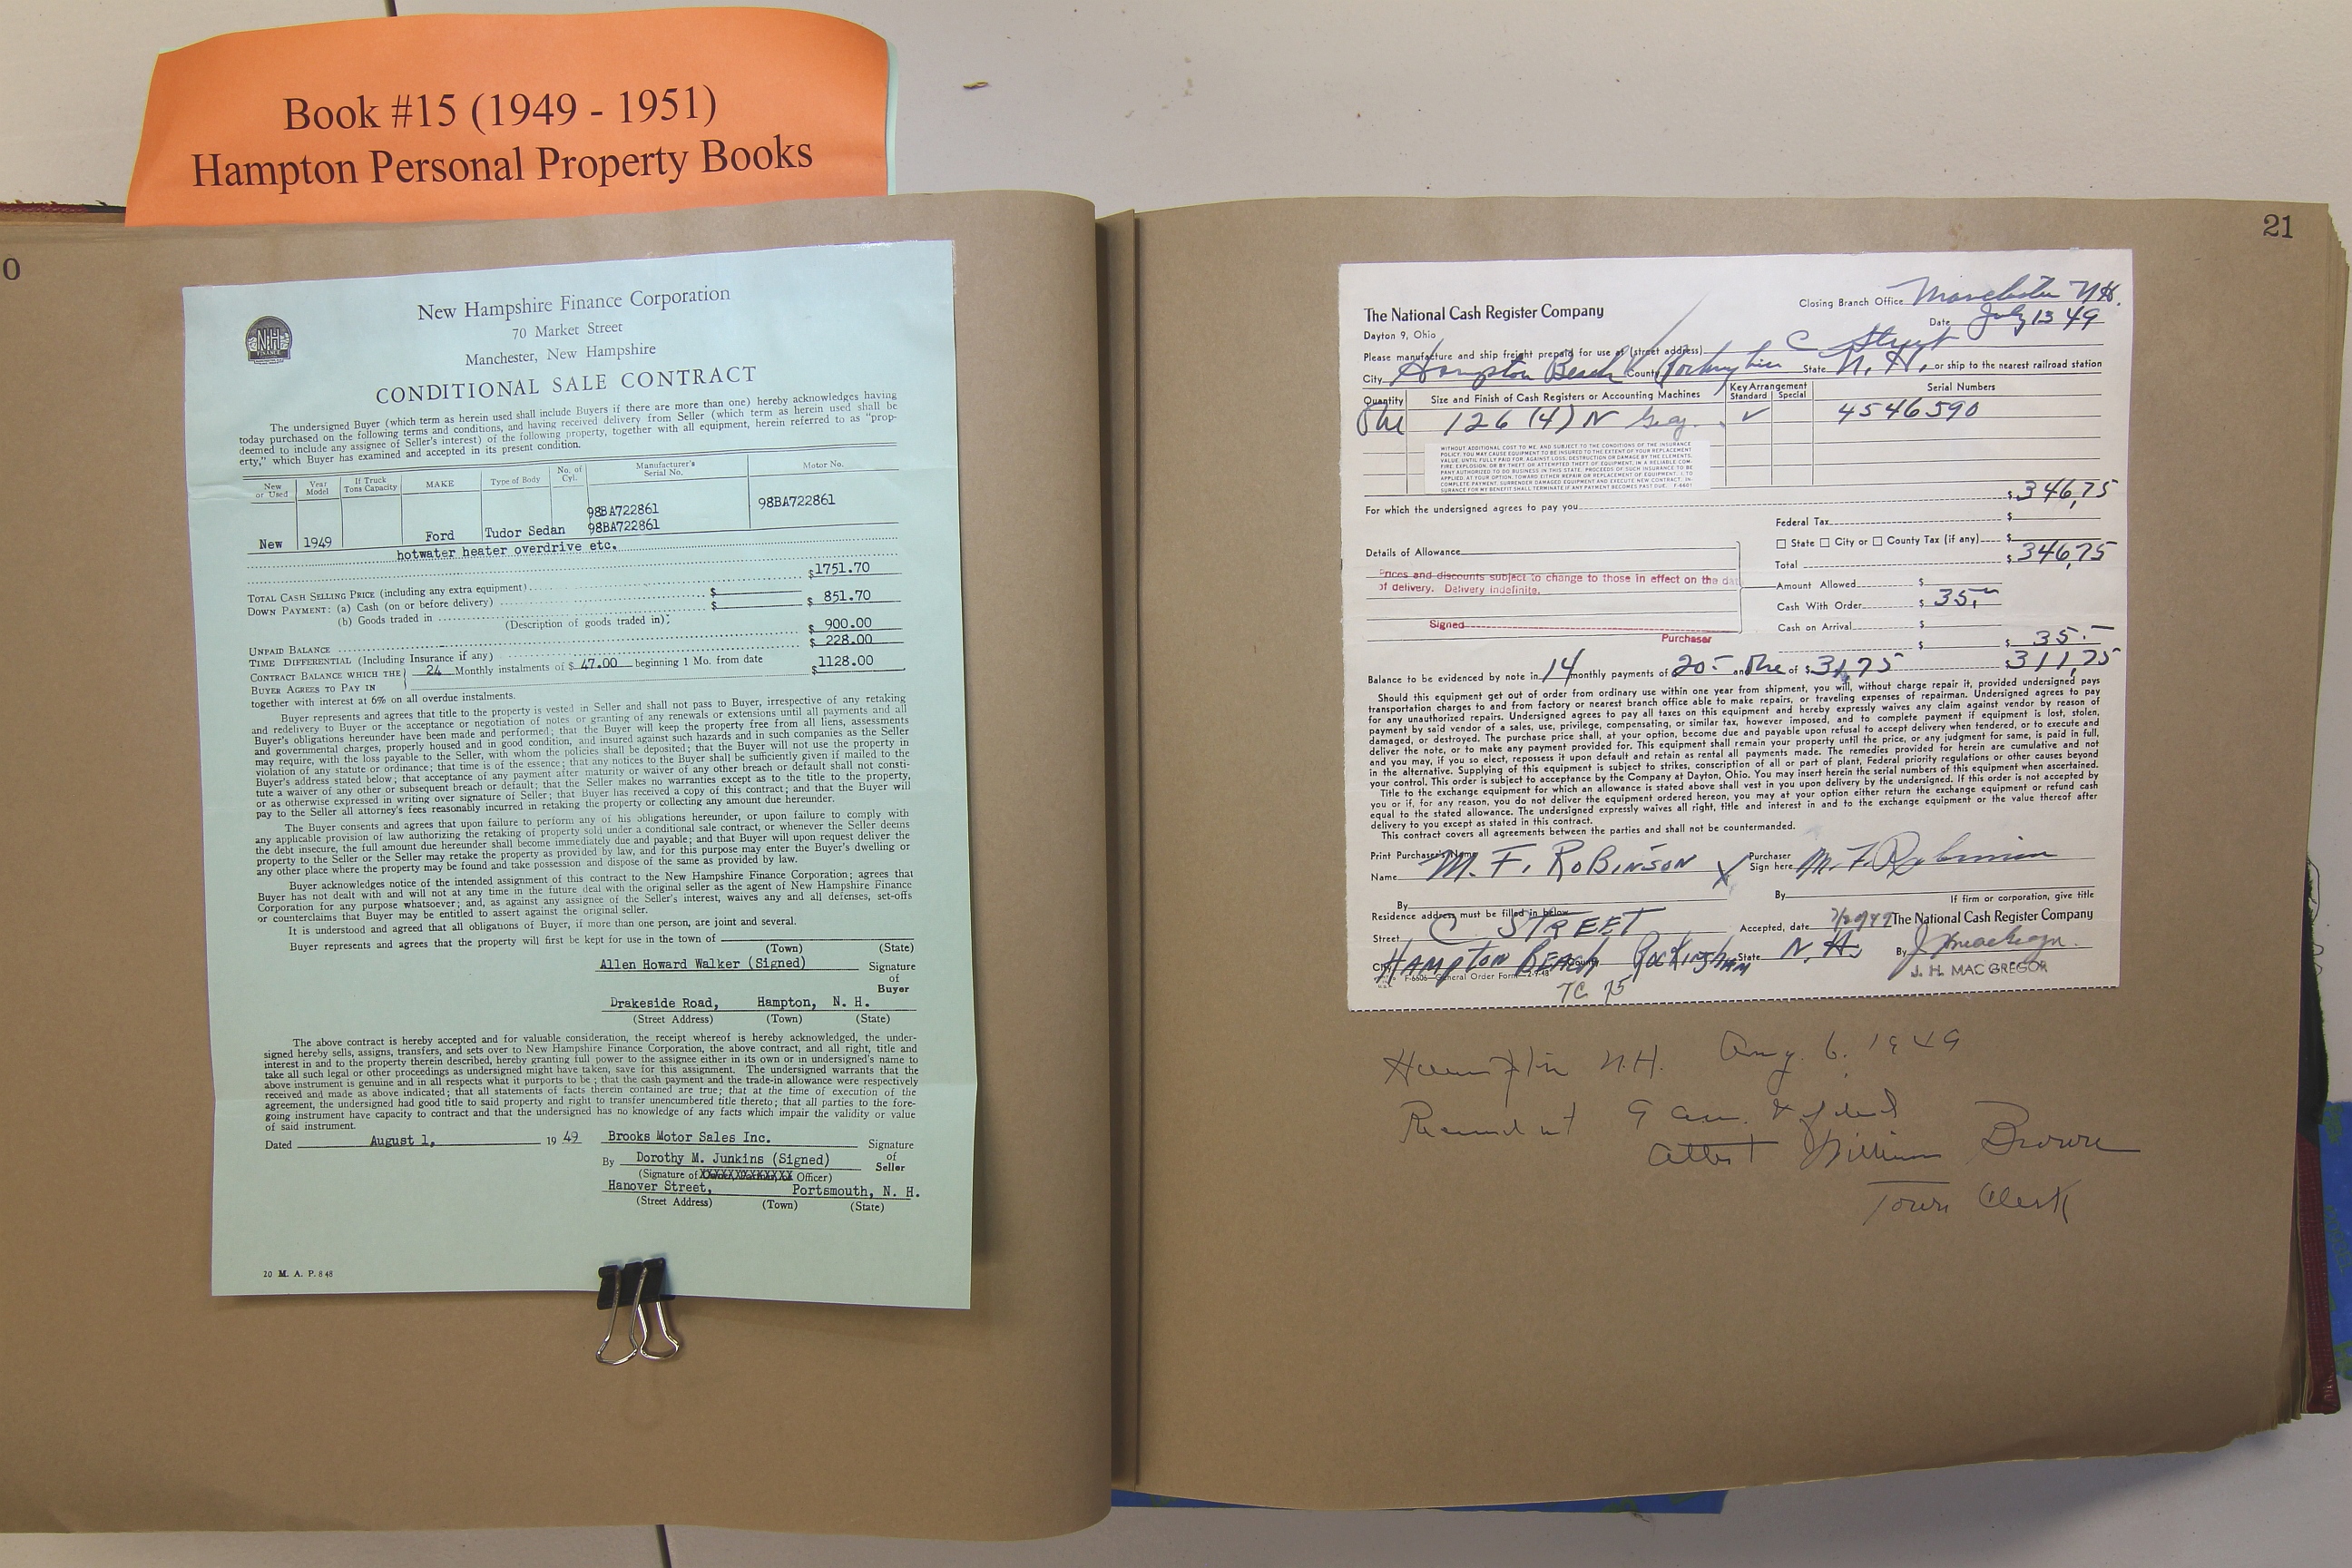 Book #15 (1949 - 1951)
Hampton Personal Property Books
0
NH
FINANCE
New Hampshire Finance Corporation
70 Market Street
Manchester, New Hampshire
CONDITIONAL SALE CONTRACT
The undersigned Buyer (which term as herein used shall include Buyers if there are more than one) hereby acknowledges having
today purchased on the following terms and conditions, and having received delivery from Seller (which term as herein used shall be
deemed to include any assignee of Seller's interest) of the following property, together with all equipment, herein referred to as "prop-
erty," which Buyer has examined and accepted in its present condition.
New or Used Year Model If Truck Tons Capacity MAKE Type of Body No. of Cyl. Manufacturer's Serial No. Motor No.
98BA722861 98BA722861
New 1949 Ford Tudor Sedan 98BA722861
hotwater heater overdrive etc.
TOTAL CASH SELLING PRICE (including any extra equipment) $1751.70
DOWN PAYMENT: (a) Cash (on or before delivery) $
(b) Goods traded in $ $ 851.70
(Description of goods traded in):
UNPAID BALANCE $ 900.00
TIME DIFFERENTIAL (Including Insurance if any) $ 228.00
CONTRACT BALANCE WHICH THE 24 Monthly instalments of $ 47.00 beginning 1 Mo. from date $1128.00
BUYER AGREES TO PAY IN
together with interest at 6% on all overdue instalments.
Buyer represents and agrees that title to the property is vested in Seller and shall not pass to Buyer, irrespective of any retaking
and redelivery to Buyer or the acceptance or negotiation of notes or granting of any renewals or extensions until all payments and all
Buyer's obligations hereunder have been made and performed; that the Buyer will keep the property free from all liens, assessments
and governmental charges, properly housed and in good condition, and insured against such hazards and in such companies as the Seller
may require, with the loss payable to the Seller, with whom the policies shall be deposited; that the Buyer will not use the property in
violation of any statute or ordinance; that time is of the essence; that any notices to the Buyer shall be sufficiently given if mailed to the
Buyer's address stated below; that acceptance of any payment after maturity or waiver of any other breach or default shall not consti-
tute a waiver of any other or subsequent breach or default; that the Seller makes no warranties except as to the title to the property,
or as otherwise expressed in writing over signature of Seller; that Buyer has received a copy of this contract; and that the Buyer will
pay to the Seller all attorney's fees reasonably incurred in retaking the property or collecting any amount due hereunder.
The Buyer consents and agrees that upon failure to perform any of his obligations hereunder, or upon failure to comply with
any applicable provision of law authorizing the retaking of property sold under a conditional sale contract, or whenever the Seller deems
the debt insecure, the full amount due hereunder shall become immediately due and payable; and that Buyer will upon request deliver the
property to the Seller or the Seller may retake the property as provided by law, and for this purpose may enter the Buyer's dwelling or
any other place where the property may be found and take possession and dispose of the same as provided by law.
Buyer acknowledges notice of the intended assignment of this contract to the New Hampshire Finance Corporation; agrees that
Buyer has not dealt with and will not at any time in the future deal with the original seller as the agent of New Hampshire Finance
Corporation for any purpose whatsoever; and, as against any assignee of the Seller's interest, waives any and all defenses, set-offs
or counterclaims that Buyer may be entitled to assert against the original seller.
It is understood and agreed that all obligations of Buyer, if more than one person, are joint and several.
Buyer represents and agrees that the property will first be kept for use in the town of
(Town) (State)
Allen Howard Walker (Signed) Signature of Buyer
Drakeside Road, Hampton, N. H.
(Street Address) (Town) (State)
The above contract is hereby accepted and for valuable consideration, the receipt whereof is hereby acknowledged, the under-
signed hereby sells, assigns, transfers, and sets over to New Hampshire Finance Corporation, the above contract, and all right, title and
interest in and to the property therein described, hereby granting full power to the assignee either in its own or in undersigned's name to
take all such legal or other proceedings as undersigned might have taken, save for this assignment. The undersigned warrants that the
above instrument is genuine and in all respects what it purports to be; that the cash payment and the trade-in allowance were respectively
received and made as above indicated; that all statements of facts therein contained are true; that at the time of execution of the
agreement, the undersigned had good title to said property and right to transfer unencumbered title thereto; that all parties to the fore-
going instrument have capacity to contract and that the undersigned has no knowledge of any facts which impair the validity or value
of said instrument.
Dated August 1, 19 49 Brooks Motor Sales Inc. Signature of Seller
By Dorothy M. Junkins (Signed)
(Signature of Officer)
Hanover Street, Portsmouth, N. H.
(Street Address) (Town) (State)
20 M. A. P. 8 48
21
The National Cash Register Company Closing Branch Office Manchester N.H.
Dayton 9, Ohio Date July 13 49
Please manufacture and ship freight prepaid for use at (street address) C Street
City Hampton Beach County Rockingham State N. H., or ship to the nearest railroad station
Quantity Size and Finish of Cash Registers or Accounting Machines Key Arrangement Standard Special Serial Numbers
One 126 (4) N Gray ✓ 4546590
WITHOUT ADDITIONAL COST TO ME, AND SUBJECT TO THE CONDITIONS OF THE INSURANCE
POLICY, YOU MAY CAUSE EQUIPMENT TO BE INSURED TO THE EXTENT OF YOUR REPLACEMENT
VALUE, UNTIL FULLY PAID FOR, AGAINST LOSS, DESTRUCTION OR DAMAGE BY THE ELEMENTS,
FIRE, EXPLOSION, OR BY THEFT OR ATTEMPTED THEFT OF EQUIPMENT, IN A RELIABLE COM-
PANY AUTHORIZED TO DO BUSINESS IN THIS STATE, PROCEEDS OF SUCH INSURANCE TO BE
APPLIED, AT YOUR OPTION, TOWARD EITHER REPAIR OR REPLACEMENT OF EQUIPMENT. I, TO
COMPLETE PAYMENT, SURRENDER DAMAGED EQUIPMENT AND EXECUTE NEW CONTRACT. IN-
SURANCE FOR MY BENEFIT SHALL TERMINATE IF ANY PAYMENT BECOMES PAST DUE. F-6601
For which the undersigned agrees to pay you $346,75
Federal Tax $
Details of Allowance
☐ State ☐ City or ☐ County Tax (if any) $
Total $346,75
Prices and discounts subject to change to those in effect on the dat
of delivery. Delivery indefinite.
Amount Allowed $
Cash With Order $ 35,–
Signed
Purchaser
Cash on Arrival $
$ $ 35.–
Balance to be evidenced by note in 14 monthly payments of 20.– and One of $31,75 311,75
Should this equipment get out of order from ordinary use within one year from shipment, you will, without charge repair it, provided undersigned pays
transportation charges to and from factory or nearest branch office able to make repairs, or traveling expenses of repairman. Undersigned agrees to pay
for any unauthorized repairs. Undersigned agrees to pay all taxes on this equipment and hereby expressly waives any claim against vendor by reason of
payment by said vendor of a sales, use, privilege, compensating, or similar tax, however imposed, and to complete payment if equipment is lost, stolen,
damaged, or destroyed. The purchase price shall, at your option, become due and payable upon refusal to accept delivery when tendered, or to execute and
deliver the note, or to make any payment provided for. This equipment shall remain your property until the price, or any judgment for same, is paid in full,
and you may, if you so elect, repossess it upon default and retain as rental all payments made. The remedies provided for herein are cumulative and not
in the alternative. Supplying of this equipment is subject to strikes, conscription of all or part of plant, Federal priority regulations or other causes beyond
your control. This order is subject to acceptance by the Company at Dayton, Ohio. You may insert herein the serial numbers of this equipment when ascertained.
Title to the exchange equipment for which an allowance is stated above shall vest in you upon delivery by the undersigned. If this order is not accepted by
you or if, for any reason, you do not deliver the equipment ordered hereon, you may at your option either return the exchange equipment or refund cash
equal to the stated allowance. The undersigned expressly waives all right, title and interest in and to the exchange equipment or the value thereof after
delivery to you except as stated in this contract.
This contract covers all agreements between the parties and shall not be countermanded.
Print Purchaser's Name
Name M. F. ROBINSON X Purchaser Sign here M. F. Robinson
By By
If firm or corporation, give title
Residence address must be filled in below
Street C STREET Accepted, date 7/20/49 The National Cash Register Company
City HAMPTON BEACH County ROCKINGHAM State N. H. By J H MacGregor
F-6606 General Order Form 2-7-48
J. H. MAC GREGOR
TC 75
Hampton N.H. Aug. 6. 1949
Received at 9 a.m. & filed
Attest William Brown
Town Clerk